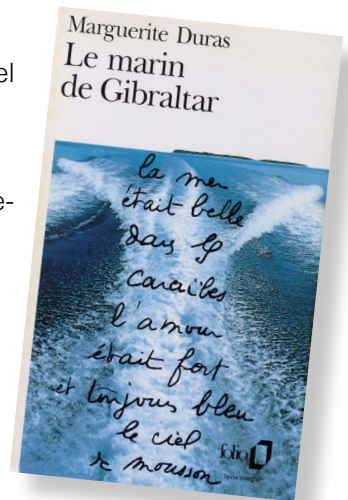 el
e-
Marguerite Duras
Le marin
de Gibraltar
la mer
était belle
dans les
caraïbes
l'amour
était fort
et toujours bleu
le ciel
de mousson
folio
Texte intégral